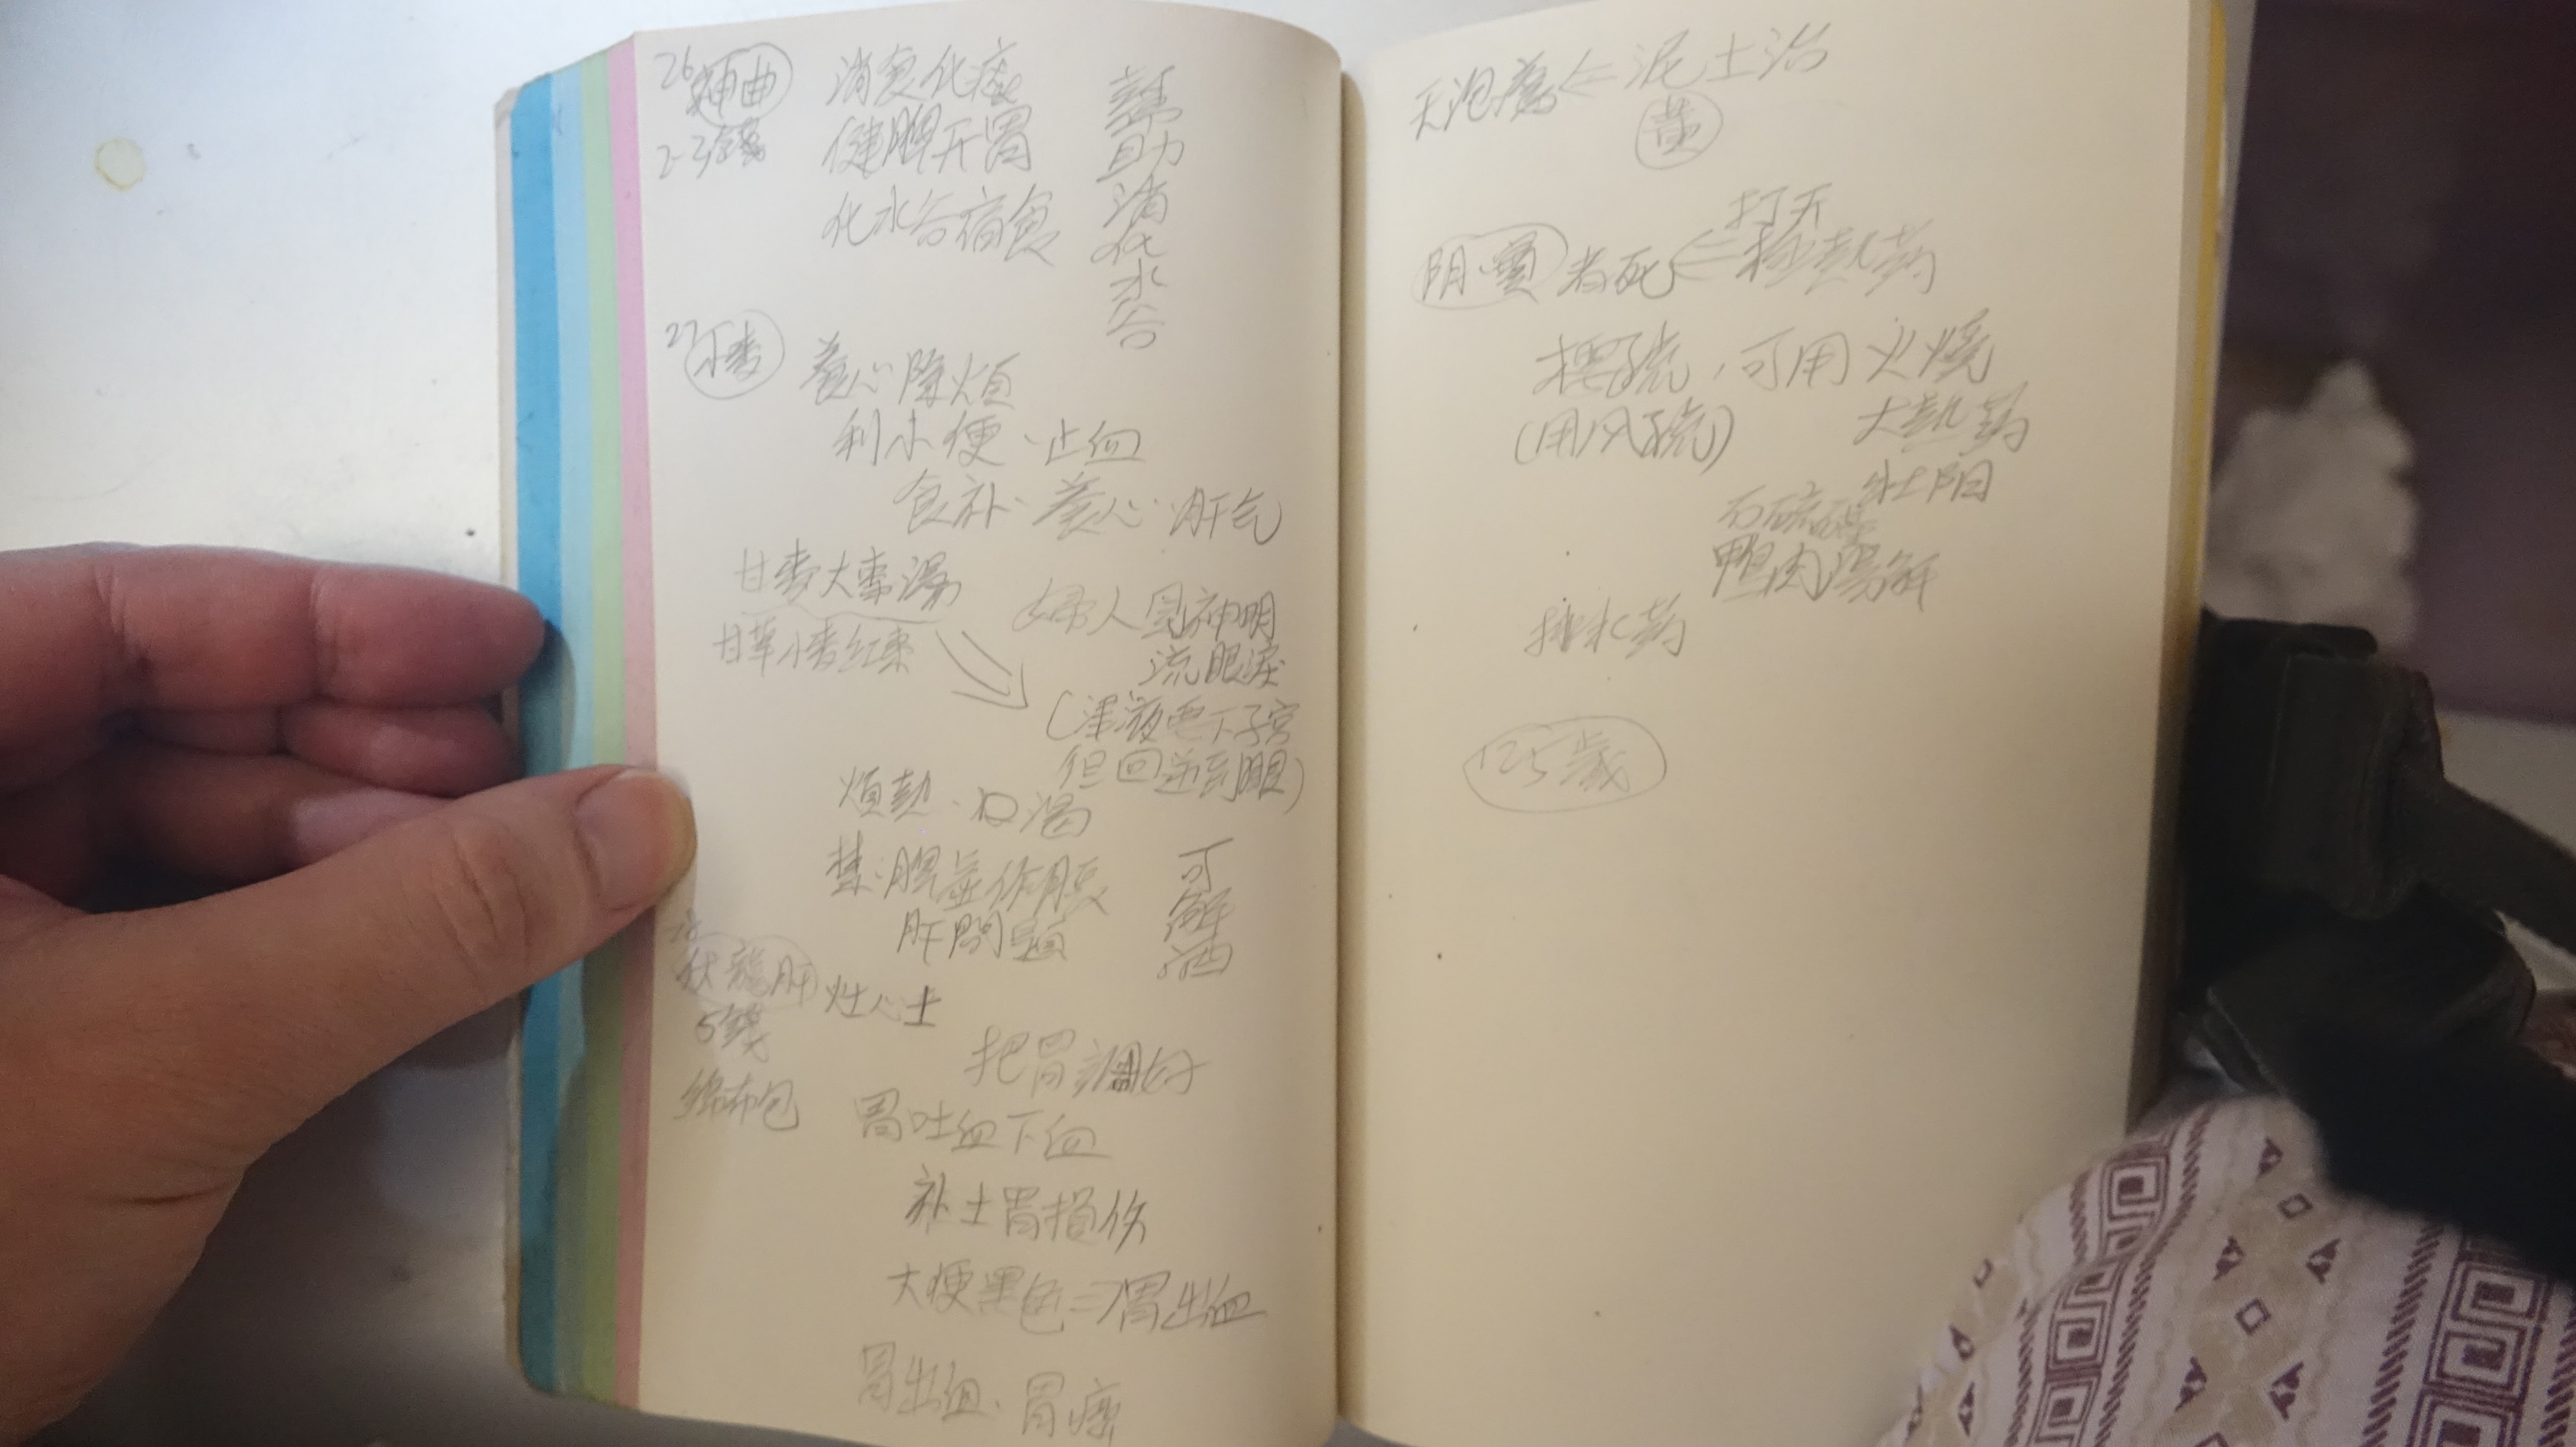 26 神曲
2-3錢
消食化痰
健脾开胃
化水谷宿食
幫助消化水谷
27 小麥
養心除煩
利小便·止血
食补·養心·肝气
甘麥大棗湯
甘草小麥紅棗
婦人見神明
流眼淚
(津液要下子宮
但回逆到眼)
煩熱·口渴
禁:脾虛作脹
肝問題
可解酒
28
伏龍肝 灶心土
5錢
綿布包
把胃調好
胃吐血下血
补土胃損伤
大便黑色=胃出血
胃出血·胃癌
天泡瘡⇐泥土治
黃
打开
阴實者死⇐極熱药
可用火燒
大熱药
壯阳
石硫磺
鴨肉湯解
排水药
125歲